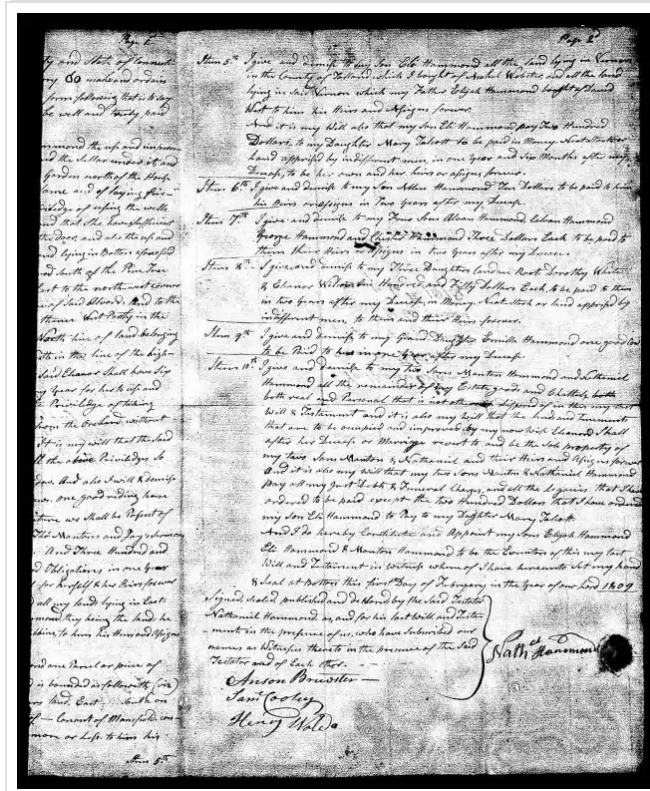 Page 1st
ty and State of Connect-
ny Do make and ordain
form following that is to say
be well and truly paid
mmond the use and improve
and the Sellar under it and
Garden north of the House
ame and of laying fire-
viledge of using the wells
and that she have
the door, and also the use and
and lying in Bolton aforesaid
and South of the Pine Tree
East to the north west corner
of said Alvord. And to the
thence West Partly in the
North line of land belonging
in that line of the high-
Said Eleanor Shall have Six
year for his use and
Priviledge of taking
from the Orchard without
It is my will that the said
all the above Priviledges So
dow. And also I will & demise
one good riding horse
ture we Shall be Possest of
And Three Hundred and
Obligations, in one year
for herself & her Heirs forever
all my lands lying in East
mond, they being the land he
to him his Heirs and Assigns
one Parcel or piece of
is bounded as followeth (viz)
land, East South on
more or Less. to him his
Item 5th
Page 2d
Item 5th I give and demise to my Son Eli Hammond all the land lying in Vernon
in the County of Tolland which I bought of Webster, and all the land
lying in said Vernon which my Father Elijah Hammond bought of David
West to him his Heirs and Assigns forever
And it is my Will also that my Son Eli Hammond pay Two Hundred
Dollars, to my Daughter Mary Talcott to be paid in Money Neat Stock or
Land apprised by indifferent men, in one year and Six Months after my
Decease, to be her own and her heirs or assigns forever.
Item 6th I give and demise to my Son Hammond Ten Dollars to be paid to him
his Heirs or assigns in Two years after my Decease.
Item 7th I give and demise to my Four Sons Alvan Hammond Calvan Hammond
George Hammond and Hammond Three Dollars Each to be paid to
them their Heirs or Assigns in two years after my Decease.
Item 8th I give and demise to my Three Daughters Root Dorothy White
& Eleanor Wilcox Hundred and Fifty Dollars Each to be paid to them
in two years after my Decease, in Money Neat Stock or land apprised by
indifferent men, to them and their Heirs forever.
Item 9th I give and demise to my Grand Daughter Emilla Hammond one good Cow
to be Paid to her in one year after my Decease
Item 10th I give and Demise to my two Sons Manton Hammond and Nathaniel
Hammond all the remainder of my Estate goods and Chattels both
both real and Personal that is not otherwise disposed of in this my last
Will & Testament and it is also my will that the land and tenements
that are to be occupied and improved by my now wife Eleanor Shall
after her Decease or Marriage revert to and be the Sole property of
my two Sons Manton & Nathaniel and their Heirs and Assigns forever
And it is also my will that my two Sons Manton & Nathaniel Hammond
Pay all my Just Debts & Funeral Charges, and all the legacies that I have
ordered to be paid except the two Hundred Dollars that I have ordered
my Son Eli Hammond to Pay to my Daghter Mary Talcott
And I do hereby Constitute and Appoint my Sons Elijah Hammond
Eli Hammond & Manton Hammond to be the Executors of this my last
Will and Testament in witness where of I have hereunto Set my hand
& Seal at Bolton this first Day of February in the year of our Lord 1809
Signed Sealed published and declared by the Said Testator
Nathaniel Hammond as, and for his last Will and Testa-
-ment in the presence of us, who have Subscribed our
names as Witnesses thereto in the presence of the Said
Testator and of Each other.
Nathel Hammond
Anson Brewster
Saml Cooley
Henry Waldo